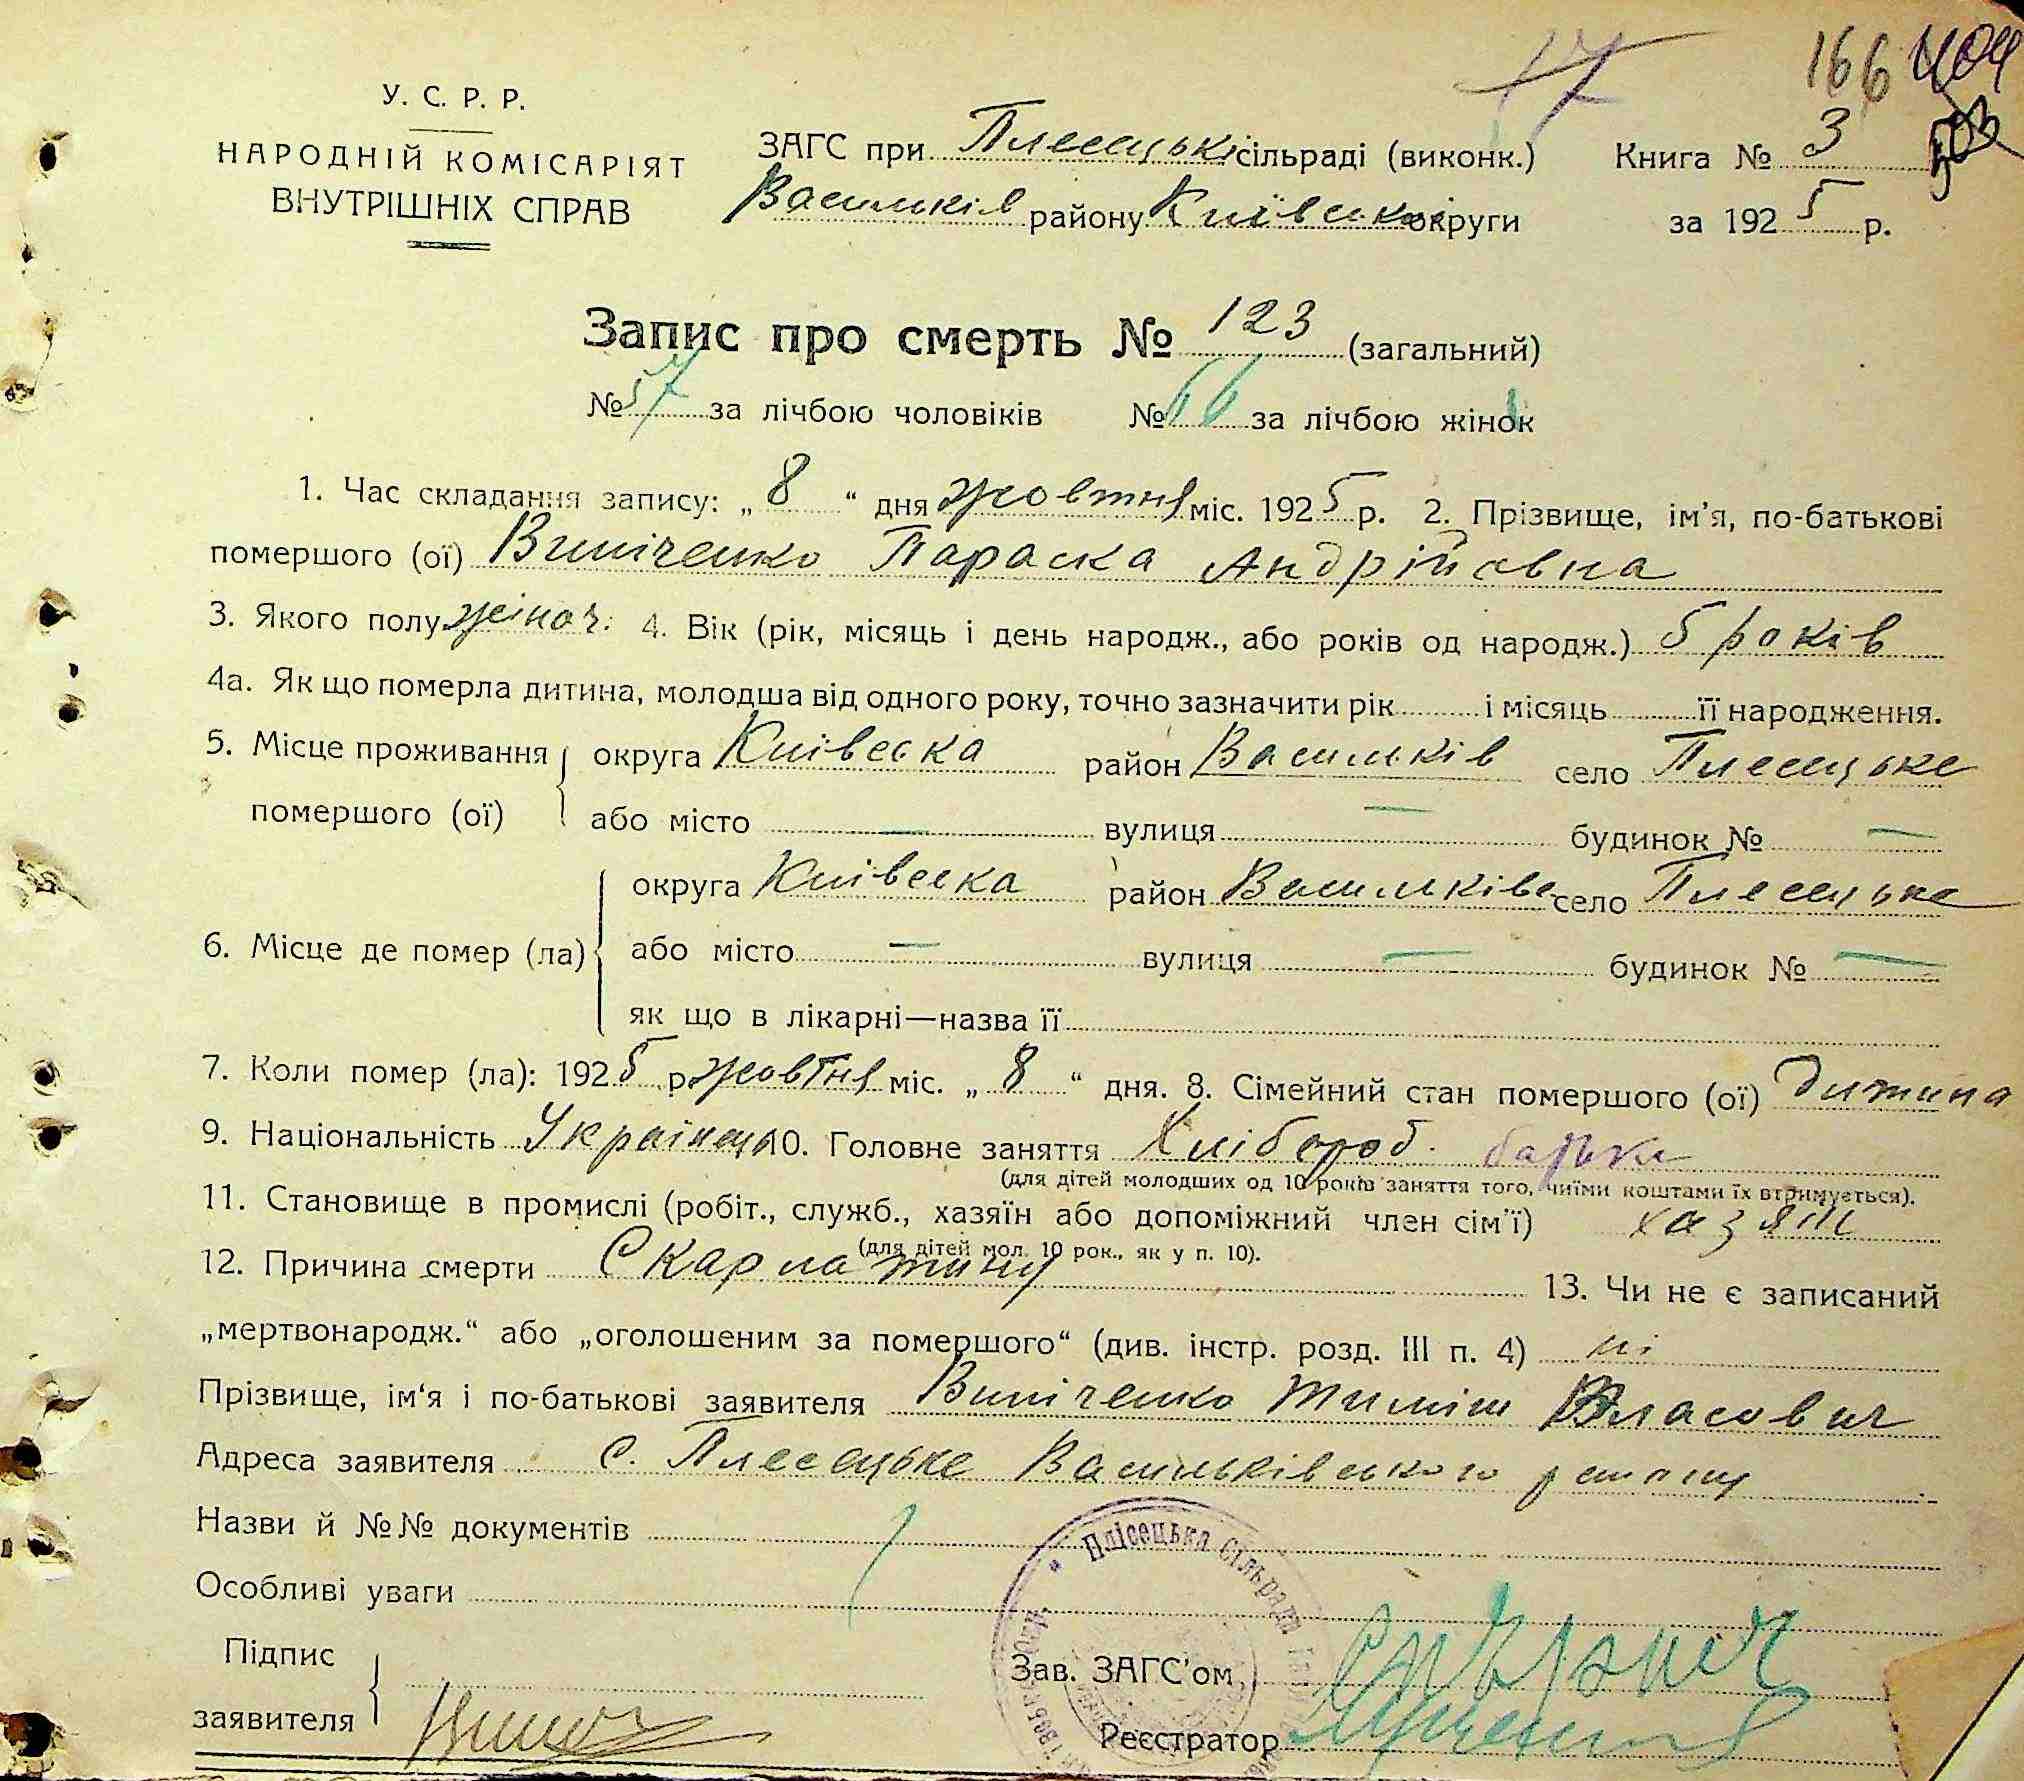 17 166 404
У. С. Р. Р.
НАРОДНІЙ КОМІСАРІЯТ
ВНУТРІШНІХ СПРАВ
ЗАГС при Плесецькі сільраді (виконк.) Книга № 3
Васильків району Київської округи за 1925 р.
Запис про смерть № 123 (загальний)
№ 57 за лічбою чоловіків № 66 за лічбою жінок
1. Час складання запису: „ 8 “ дня жовтня міс. 1925 р. 2. Прізвище, ім'я, по-батькові
помершого (ої) Виніченко Параска Андрійовна
3. Якого полу жіноч. 4. Вік (рік, місяць і день народж., або років од народж.) 5 років
4а. Як що померла дитина, молодша від одного року, точно зазначити рік і місяць її народження.
5. Місце проживання помершого (ої) округа Київська район Васильків село Плесецьке
або місто — вулиця — будинок № —
6. Місце де помер (ла) округа Київська район Васильків село Плесецьке
або місто — вулиця — будинок № —
як що в лікарні—назва її
7. Коли помер (ла): 1925 р. жовтня міс. „ 8 “ дня. 8. Сімейний стан помершого (ої) Дитина
9. Національність Українець 10. Головне заняття Хлібороб. батько
(для дітей молодших од 10 років заняття того, чиїми коштами їх втримується).
11. Становище в промислі (робіт., служб., хазяїн або допоміжний член сім'ї) хазяін
(для дітей мол. 10 рок., як у п. 10).
12. Причина смерти Скарлатина 13. Чи не є записаний
„мертвонародж.“ або „оголошеним за помершого“ (див. інстр. розд. III п. 4) ні
Прізвище, ім'я і по-батькові заявителя Виніченко Тиміш Власович
Адреса заявителя с. Плесецьке Васильківського району
Назви й №№ документів
Особливі уваги
Плісецька сільрада
Підпис заявителя
Зав. ЗАГС'ом
Реєстратор